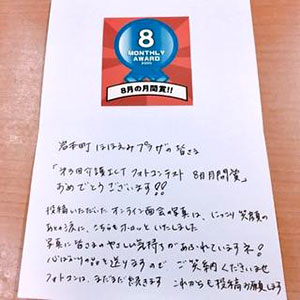 8
MONTHLY
AWARD
8月の月間賞!!
岩本町ほほえみプラザの皆さま
「オラの介護ICTフォトコンテスト 8月月間賞」
おめでとうございます!!
投稿いただいたオンライン面会の写真は、じっつに笑顔の
あふれ、こちらもホッといたしました
写真に皆さまのやさしい気持ちがあふれていますネ!
心ばかりの品を送りますので ご笑納くださいませ
フォトコンは、まだまだ続きます これからも投稿お願いします